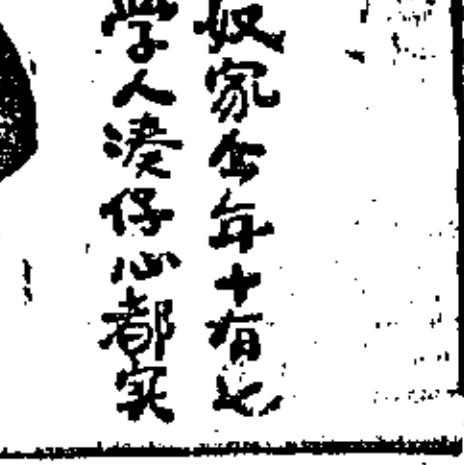 奴家今年十有七
學人湊仔心都实